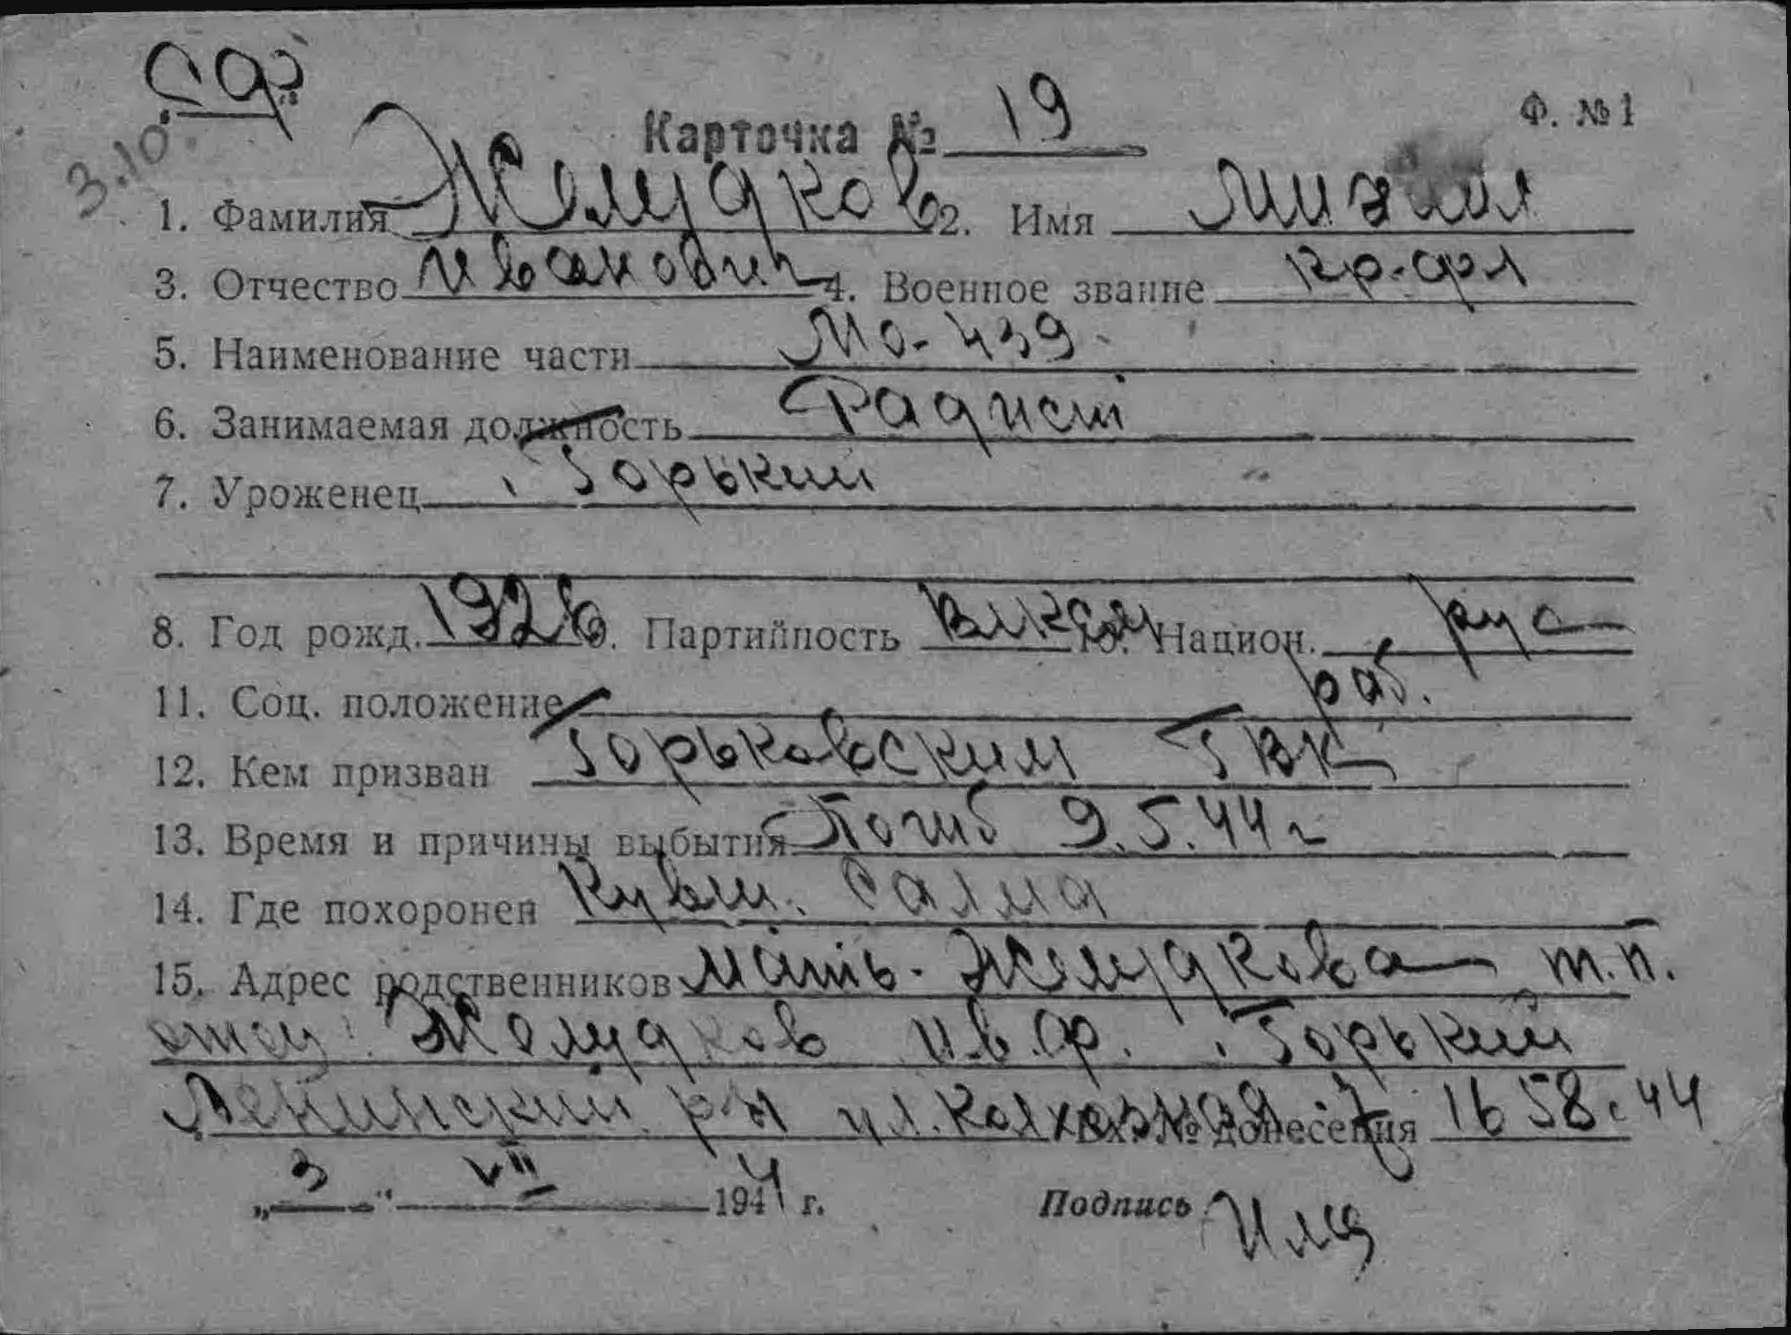 СФ
3.10.
Карточка № 19
Ф. № 1
1. Фамилия Желудков 2. Имя Михаил
3. Отчество Иванович 4. Военное звание кр-фл
5. Наименование части МО-439
6. Занимаемая должность Радист
7. Уроженец г. Горький
8. Год рожд. 1926 9. Партийность ВЛКСМ 10. Национ. рус
11. Соц. положение раб.
12. Кем призван Горьковским ГВК
13. Время и причины выбытия Погиб 9.5.44 г
14. Где похоронен Кувш. Салма
15. Адрес родственников мать - Желудкова т.п.
отец: Желудков Ив. Ф. г. Горький
Ленинский р-н ул. Колхозная 7 Вх. № донесения 1658 с 44
„3" VII 1944 г. Подпись